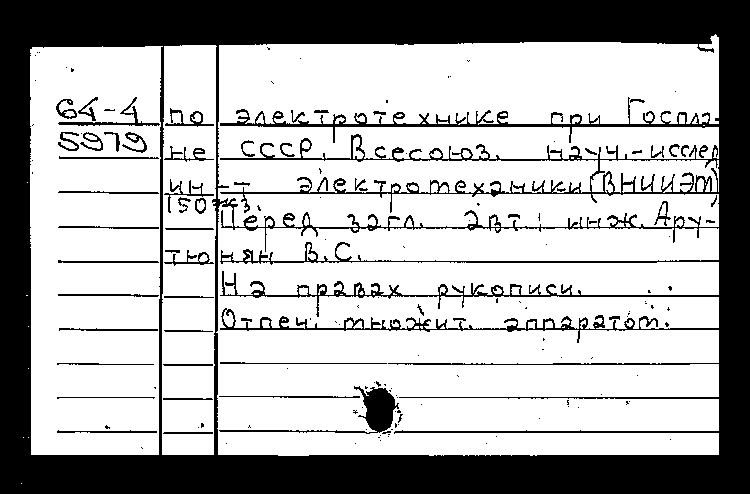 64-4 по электротехнике при Госпла-
5979 не СССР, Всесоюз. науч.-исслед
ин-т электромеханики (ВНИИЭМ)
150 экз.
Перед загл. авт.: инж. Ару-
тюнян В.С.
На правах рукописи.
Отпеч. множит. аппаратом.